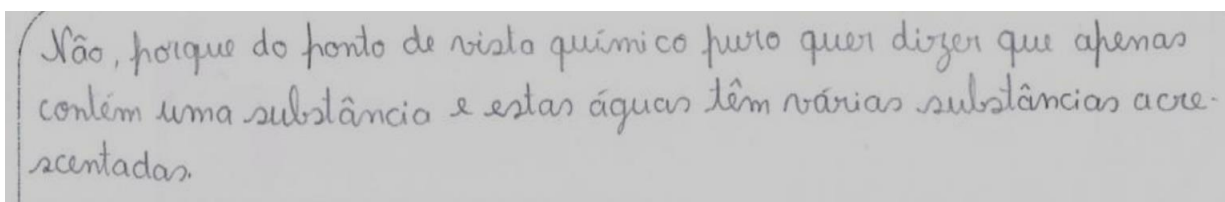 Não, porque do ponto de vista químico puro quer dizer que apenas
contém uma substância e estas águas têm várias substâncias acre-
scentadas.